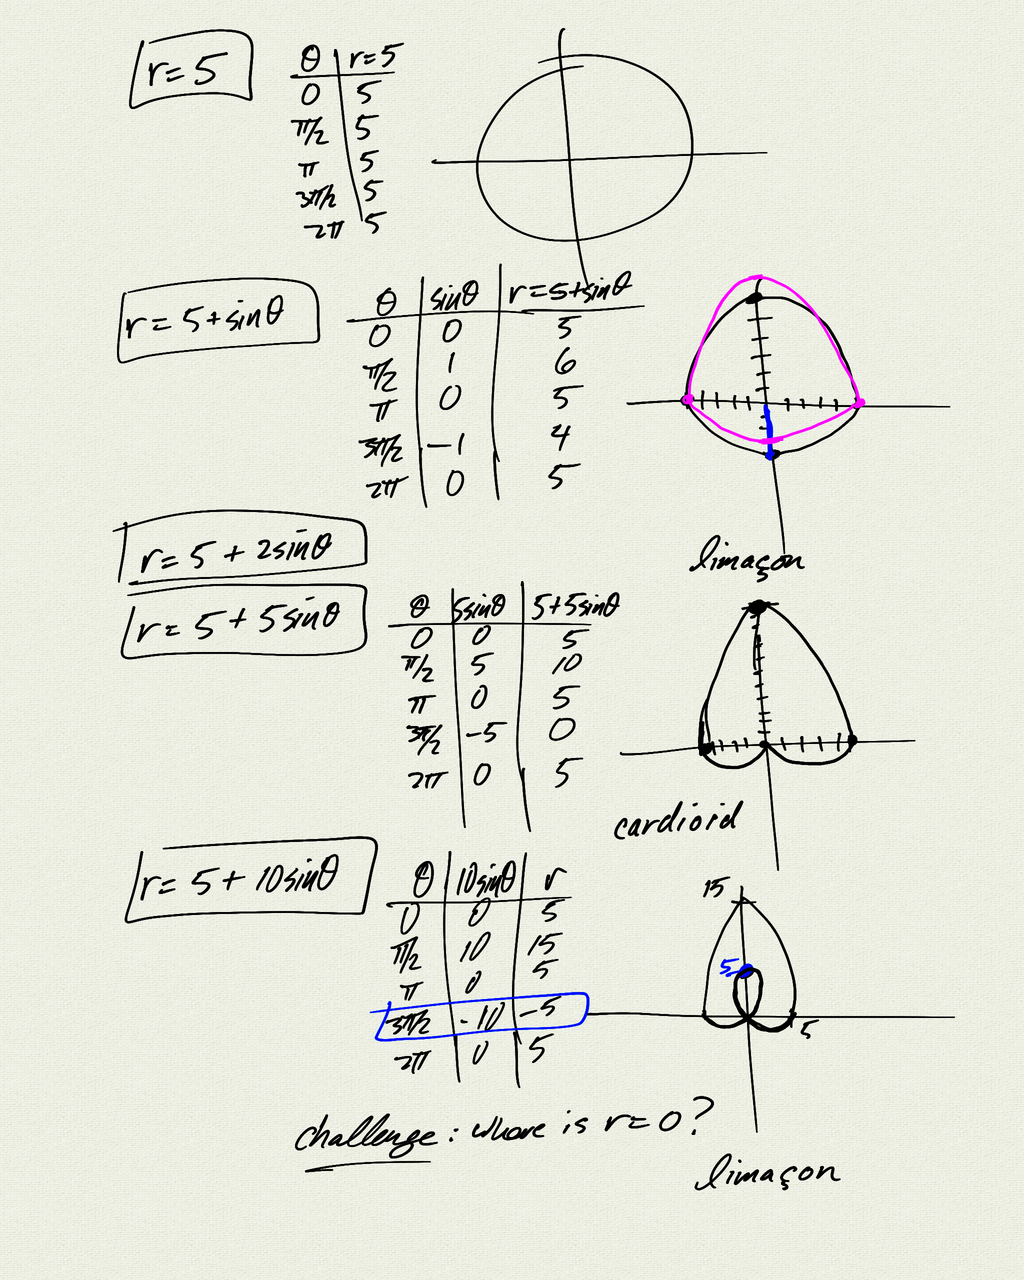 r = 5
θ r = 5
0 5
π/2 5
π 5
3π/2 5
2π 5
r = 5 + sinθ
θ sinθ r = 5 + sinθ
0 0 5
π/2 1 6
π 0 5
3π/2 -1 4
2π 0 5
limaçon
r = 5 + 2sinθ
r = 5 + 5sinθ
θ 5sinθ 5+5sinθ
0 0 5
π/2 5 10
π 0 5
3π/2 -5 0
2π 0 5
cardioid
r = 5 + 10sinθ
θ 10sinθ r
0 0 5
π/2 10 15
π 0 5
3π/2 -10 -5
2π 0 5
15
5
5
challenge: where is r = 0?
limaçon